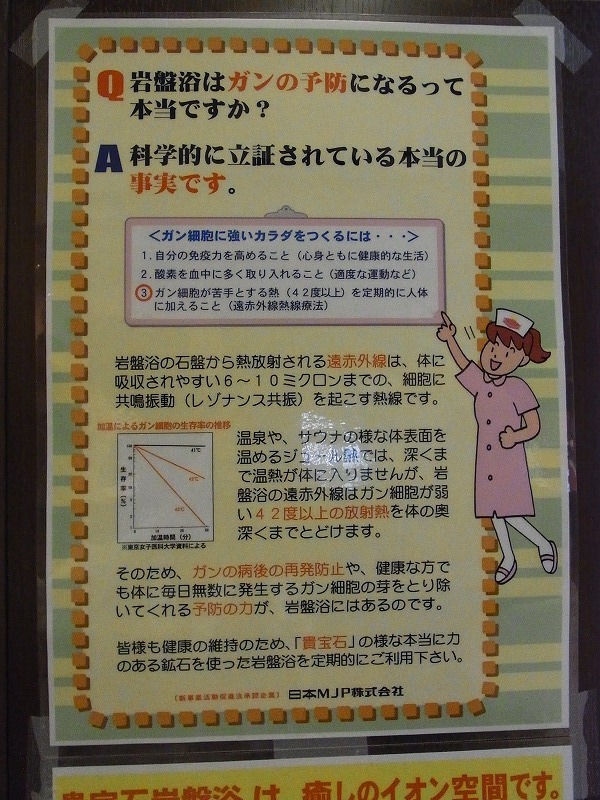 Q 岩盤浴はガンの予防になるって
本当ですか？
A 科学的に立証されている本当の
事実です。
＜ガン細胞に強いカラダをつくるには・・・＞
1. 自分の免疫力を高めること（心身ともに健康的な生活）
2. 酸素を血中に多く取り入れること（適度な運動など）
③ ガン細胞が苦手とする熱（４２度以上）を定期的に人体
に加えること（遠赤外線熱線療法）
岩盤浴の石盤から熱放射される遠赤外線は、体に
吸収されやすい６〜１０ミクロンまでの、細胞に
共鳴振動（レゾナンス共振）を起こす熱線です。
加温によるガン細胞の生存率の推移
生存率（％）
41℃
42℃
43℃
加温時間（分）
※東京女子医科大学資料による
温泉や、サウナの様な体表面を
温めるジュール熱では、深くま
で温熱が体に入りませんが、岩
盤浴の遠赤外線はガン細胞が弱
い４２度以上の放射熱を体の奥
深くまでとどけます。
そのため、ガンの病後の再発防止や、健康な方で
も体に毎日無数に発生するガン細胞の芽をとり除
いてくれる予防の力が、岩盤浴にはあるのです。
皆様も健康の維持のため、「貴宝石」の様な本当に力
のある鉱石を使った岩盤浴を定期的にご利用下さい。
（新事業活動促進法承認企業） 日本MJP株式会社
貴宝石岩盤浴は、癒しのイオン空間です。